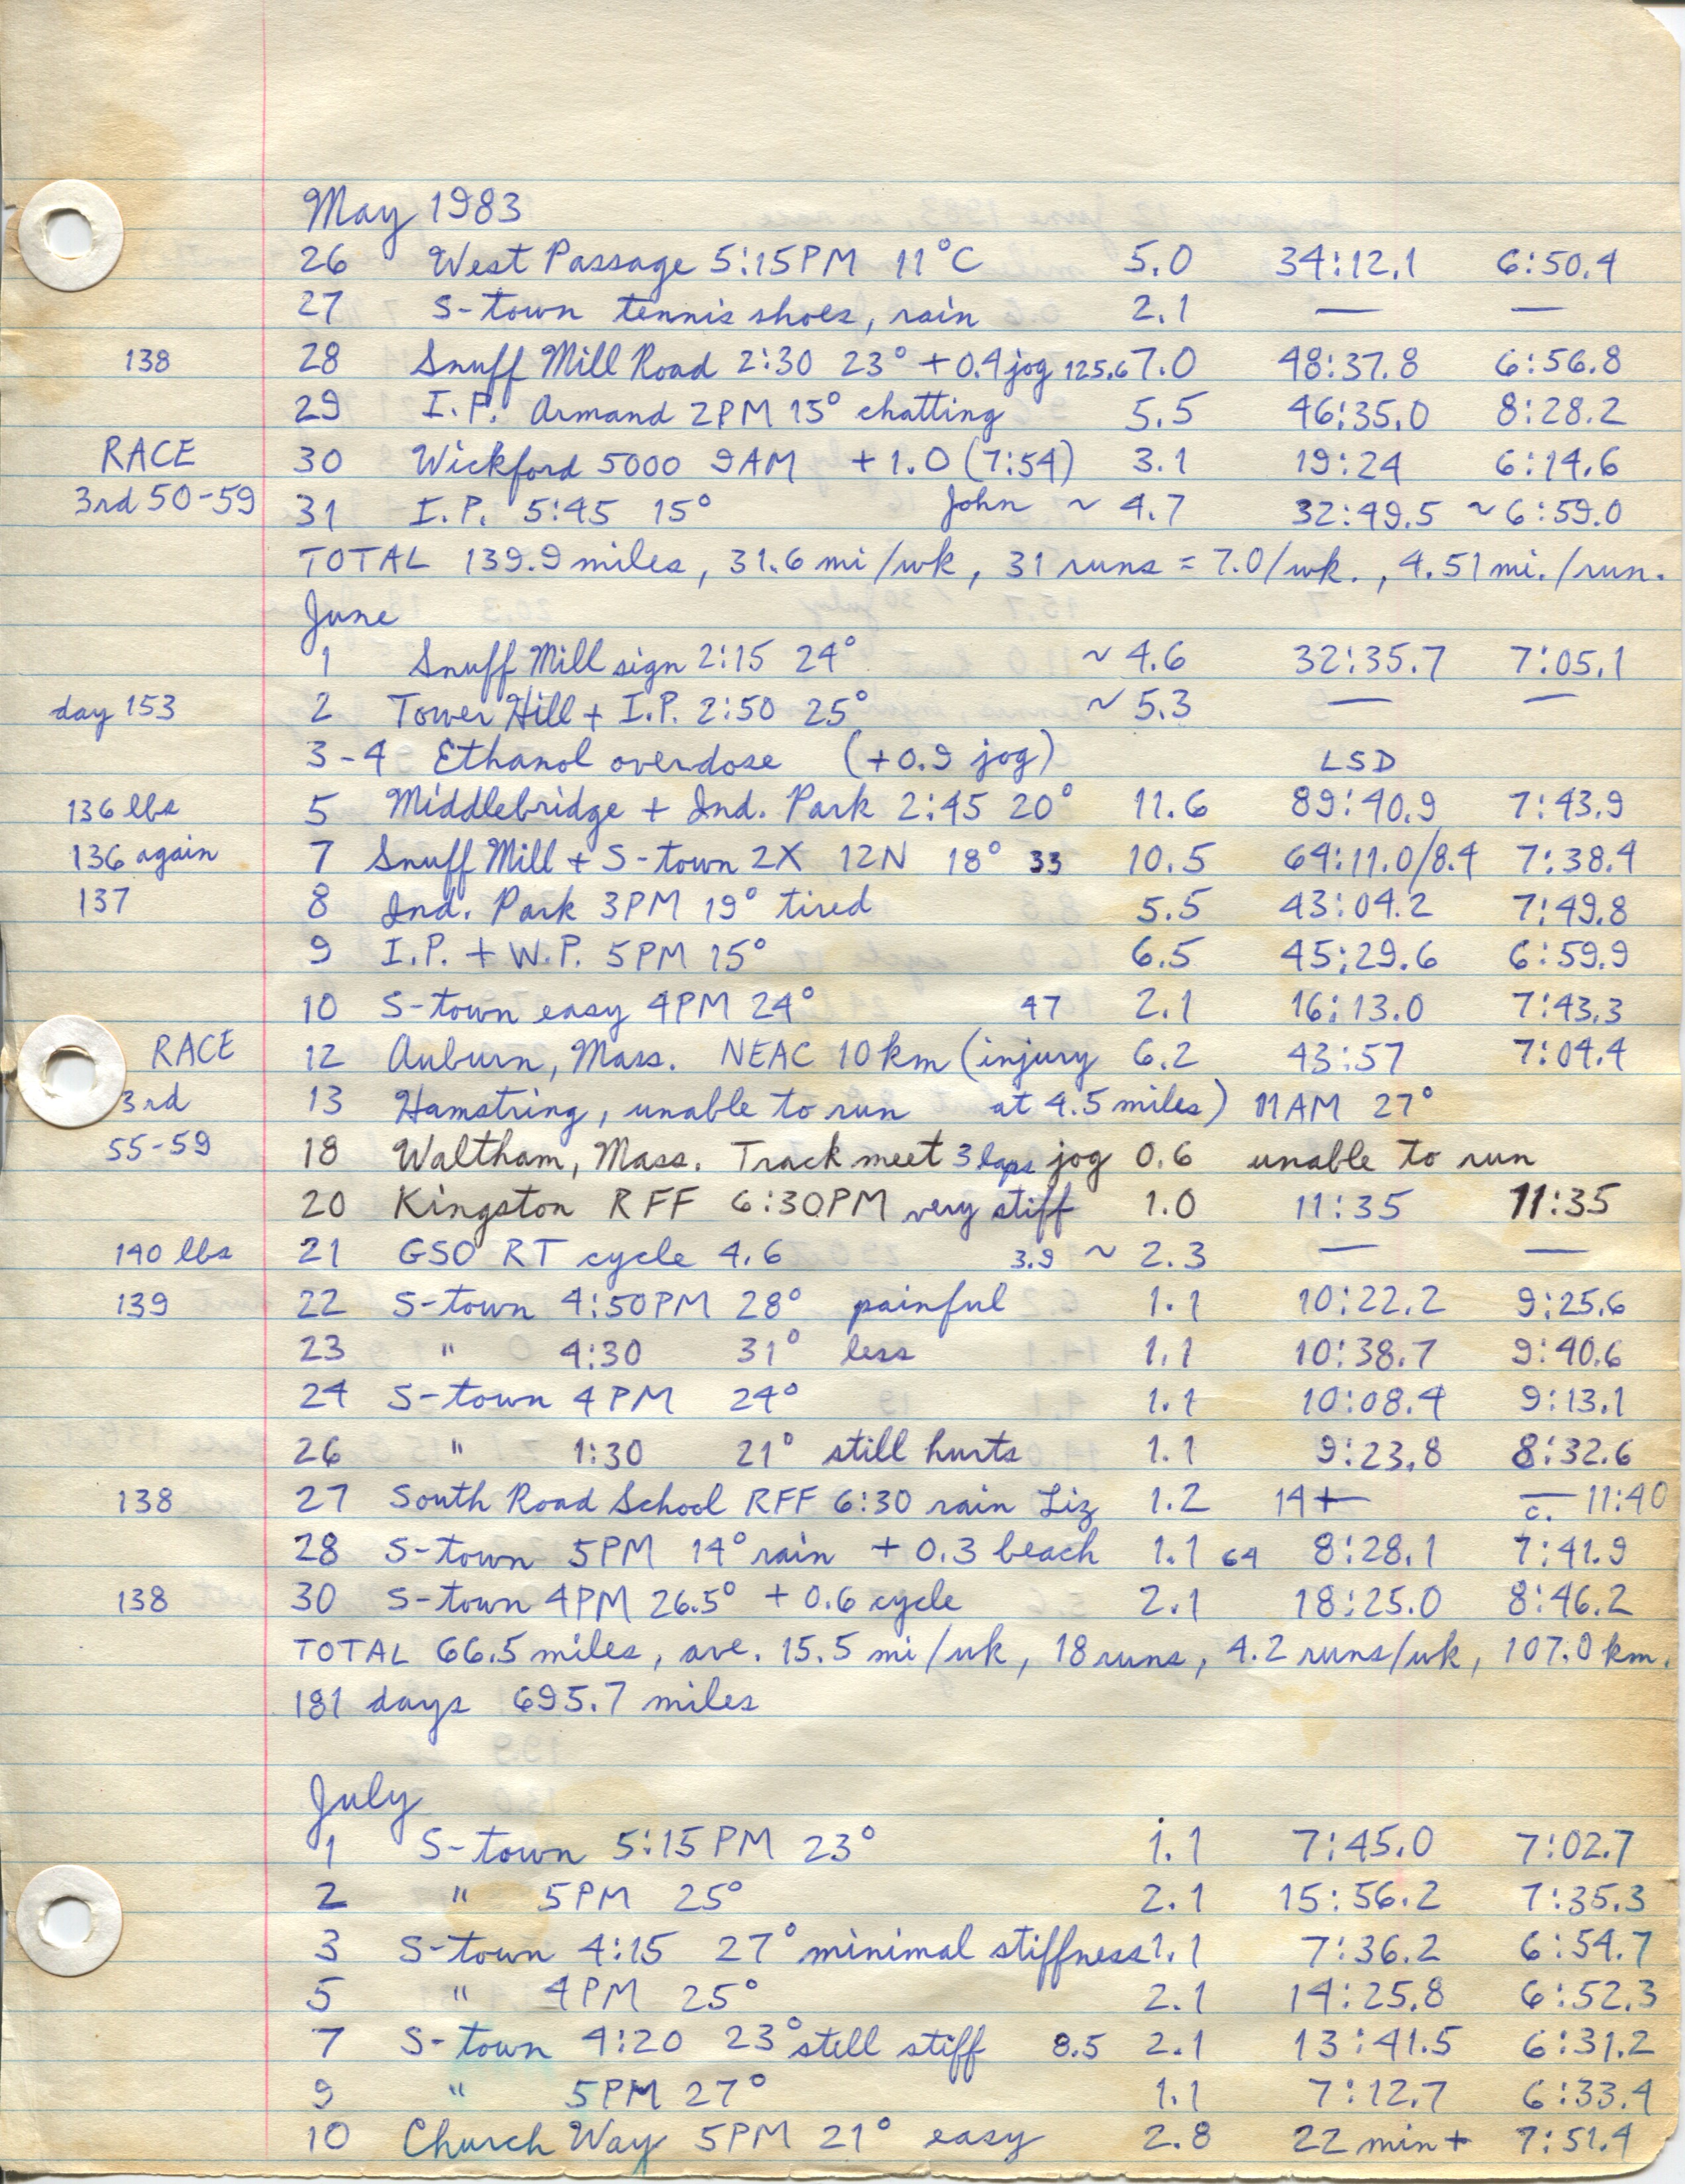 May 1983
26 West Passage 5:15PM 11°C 5.0 34:12.1 6:50.4
27 S-town tennis shoes, rain 2.1 — —
138 28 Snuff Mill Road 2:30 23° + 0.4 jog 125.6 7.0 48:37.8 6:56.8
29 I.P. Armand 2PM 15° chatting 5.5 46:35.0 8:28.2
RACE 30 Wickford 5000 9AM + 1.0 (7:54) 3.1 19:24 6:14.6
3rd 50-59 31 I.P. 5:45 15° John ~ 4.7 32:49.5 ~6:59.0
TOTAL 139.9 miles, 31.6 mi/wk, 31 runs = 7.0/wk., 4.51 mi./run.
June
1 Snuff Mill sign 2:15 24° ~ 4.6 32:35.7 7:05.1
day 153 2 Tower Hill + I.P. 2:50 25° ~ 5.3 — —
3-4 Ethanol overdose (+0.9 jog) LSD
136 lbs 5 Middlebridge + Ind. Park 2:45 20° 11.6 89:40.9 7:43.9
136 again 7 Snuff Mill + S-town 2X 12N 18° 33 10.5 64:11.0/8.4 7:38.4
137 8 Ind. Park 3PM 19° tired 5.5 43:04.2 7:49.8
9 I.P. + W.P. 5PM 15° 6.5 45:29.6 6:59.9
10 S-town easy 4PM 24° 47 2.1 16:13.0 7:43.3
RACE 12 Auburn, Mass. NEAC 10 km (injury 6.2 43:57 7:04.4
3rd 13 Hamstring, unable to run at 4.5 miles) 11AM 27°
55-59 18 Waltham, Mass. Track meet 3 laps jog 0.6 unable to run
20 Kingston RFF 6:30PM very stiff 1.0 11:35 11:35
140 lbs 21 GSO RT cycle 4.6 3.9 ~ 2.3 — —
139 22 S-town 4:50PM 28° painful 1.1 10:22.2 9:25.6
23 " 4:30 31° less 1.1 10:38.7 9:40.6
24 S-town 4PM 24° 1.1 10:08.4 9:13.1
26 " 1:30 21° still hurts 1.1 9:23.8 8:32.6
138 27 South Road School RFF 6:30 rain Liz 1.2 14+— — c. 11:40
28 S-town 5PM 14° rain + 0.3 beach 1.1 64 8:28.1 7:41.9
138 30 S-town 4PM 26.5° + 0.6 cycle 2.1 18:25.0 8:46.2
TOTAL 66.5 miles, ave. 15.5 mi/wk, 18 runs, 4.2 runs/wk, 107.0 km.
181 days 695.7 miles
July
1 S-town 5:15 PM 23° 1.1 7:45.0 7:02.7
2 " 5PM 25° 2.1 15:56.2 7:35.3
3 S-town 4:15 27° minimal stiffness 1.1 7:36.2 6:54.7
5 " 4PM 25° 2.1 14:25.8 6:52.3
7 S-town 4:20 23° still stiff 8.5 2.1 13:41.5 6:31.2
9 " 5PM 27° 1.1 7:12.7 6:33.4
10 Church Way 5PM 21° easy 2.8 22 min+ 7:51.4